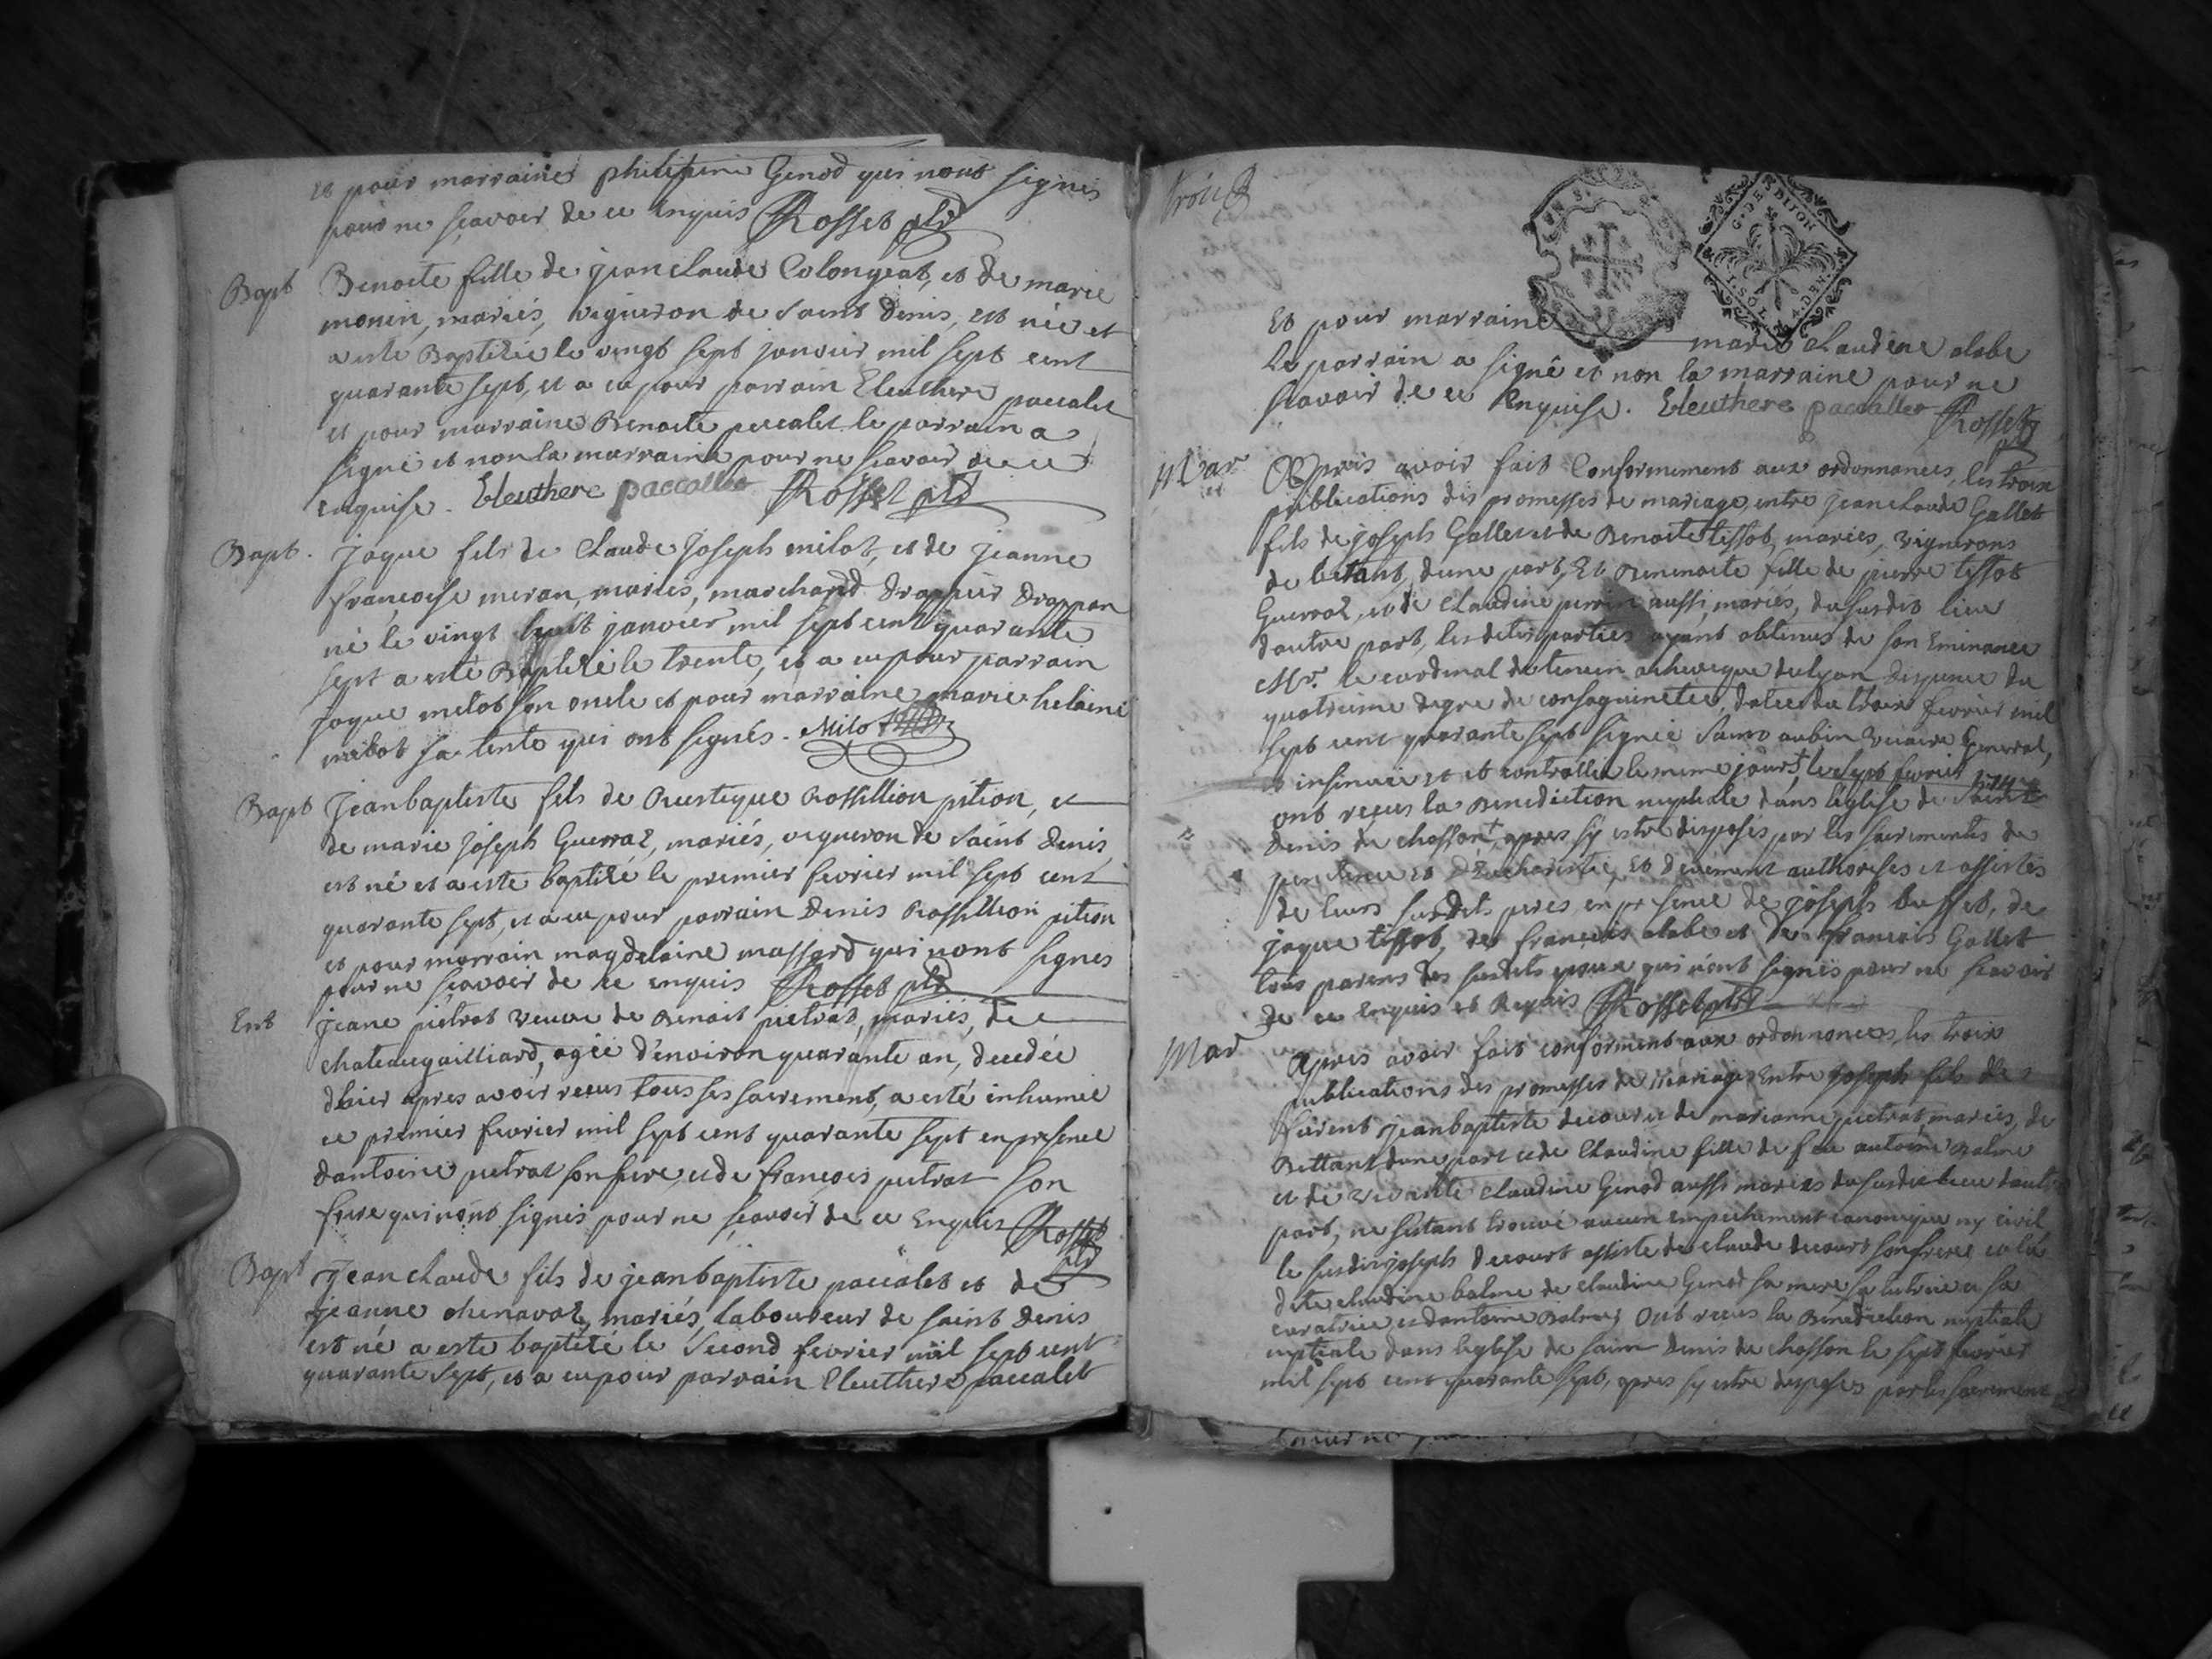 et pour marraine philipine Genod qui nont signés
pour ne sçavoir de ce enquis Rosset ptr
Bapt Benoite fille de jean claude Colongeat, et de marie
monin, mariés, vigneron de saint denis, est née et
a esté Baptizée le vingt sept janvier mil sept cent
quarante sept, et a eu pour parrain Eleuthere paccalet
et pour marraine Benoite paccalet le parrain a
signé et non la marraine pour ne scavoir de ce
enquise. Eleuthere paccallet Rosset ptr
Bapt. jaque fils de claude joseph milot, et de jeanne
françoise meran, mariés, marchand drappier
né le vingt huit janvier mil sept cent quarante
sept a esté Baptizé le trente, et a eu pour parrain
jaque milot son oncle et pour marraine marie helaine
milot sa tente qui ont signés. Milot
Bapt Jean baptiste fils de Rustique Rossillion pition, et
de marie joseph Guerraz, mariés, vigneron de saint denis
est né et a este baptizé le premier fevrier mil sept cent
quarante sept, et a eu pour parrain denis Rossillion pition
et pour marrain magdelaine massard qui nont signes
pour ne sçavoir de ce enquis Rosset ptr
Ent jeane pietrat veuve de Benoit pietrat, mariés, de
chateaugailliard, agée d'environ quarante an, decedée
dhier apres avoir recus tous ses sacrement, a esté inhumée
ce premier fevrier mil sept cent quarante sept en presence
dantoine pietrat son frere, et de françois pietrat son
frere qui nont signés pour ne sçavoir de ce Enquis Rosset
ptr
Bapt Jean claude fils de jean baptiste paccalet et de
jeanne chenavaz, mariés, laboureur de saint denis
est né a este baptizé le second fevrier mil sept cent
quarante sept, et a eu pour parrain Eleuthere paccalet
trois
G. DE DIJON
Et pour marraine marie claudine alabe
le parrain a signé et non la marraine pour ne
scavoir de ce enquise. Eleuthere paccallet Rosset
Mar Apres avoir fait Conformement aux ordonnances, les trois
publications des promesses de mariage, entre jean claude Gallet
fils de joseph Gallet et de Benoite tissot, mariés, vignerons
de betant, dune part, Et Benoite fille de pierre tissot
Guerraz, et de claudine perrin aussi mariés, du susdit lieu
dautre part, les dites parties ayant obtenus de son Eminance
Mr. le cardinal de tencin archeveque de lyon dispence du
quatrieme degre de consaguinetée, datée du trois fevrier mil
sept cent quarante sept signée saint aubin vicaire General,
insinuée et controllée le meme jour, le sept fevrier 1747
ont reçus la Benediction nuptiale dans leglise de saint
denis de chosson, apres sy estre disposés par les sacrements de
penitence et d'Eucharistie, et duement authorises et assistés
de leurs susdits peres en presence de joseph buffet, de
jaque tissot, de françois alabe et de françois Gallet
tous parens des susdits epoux qui n'ont signés pour ne scavoir
de ce enquis et Requis Rosset ptr
Mar Apres avoir fait conforment aux ordonnances, les trois
publications des promesses de Mariage, Entre joseph fils de
jean baptiste decour et de marianne pietrat, mariés, de
Bettant dune part et de Claudine fille de feu antoine Balme
et de vivante claudine Genod aussi mariés du susdit lieu dautre
part, ne s'etant trouvé aucun empechement canonique ny civil
le susdit joseph decourt assiste de claude decourt son frere et la
dite claudine balme de claudine Genod sa mere sa tutrice et sa
curatrice et dantoine Balme, Ont recus la Benediction nuptiale
nuptiale dans leglise de saint denis de chosson le sept fevrier
mil sept cent quarante sept, apres sy estre disposés par les sacrement